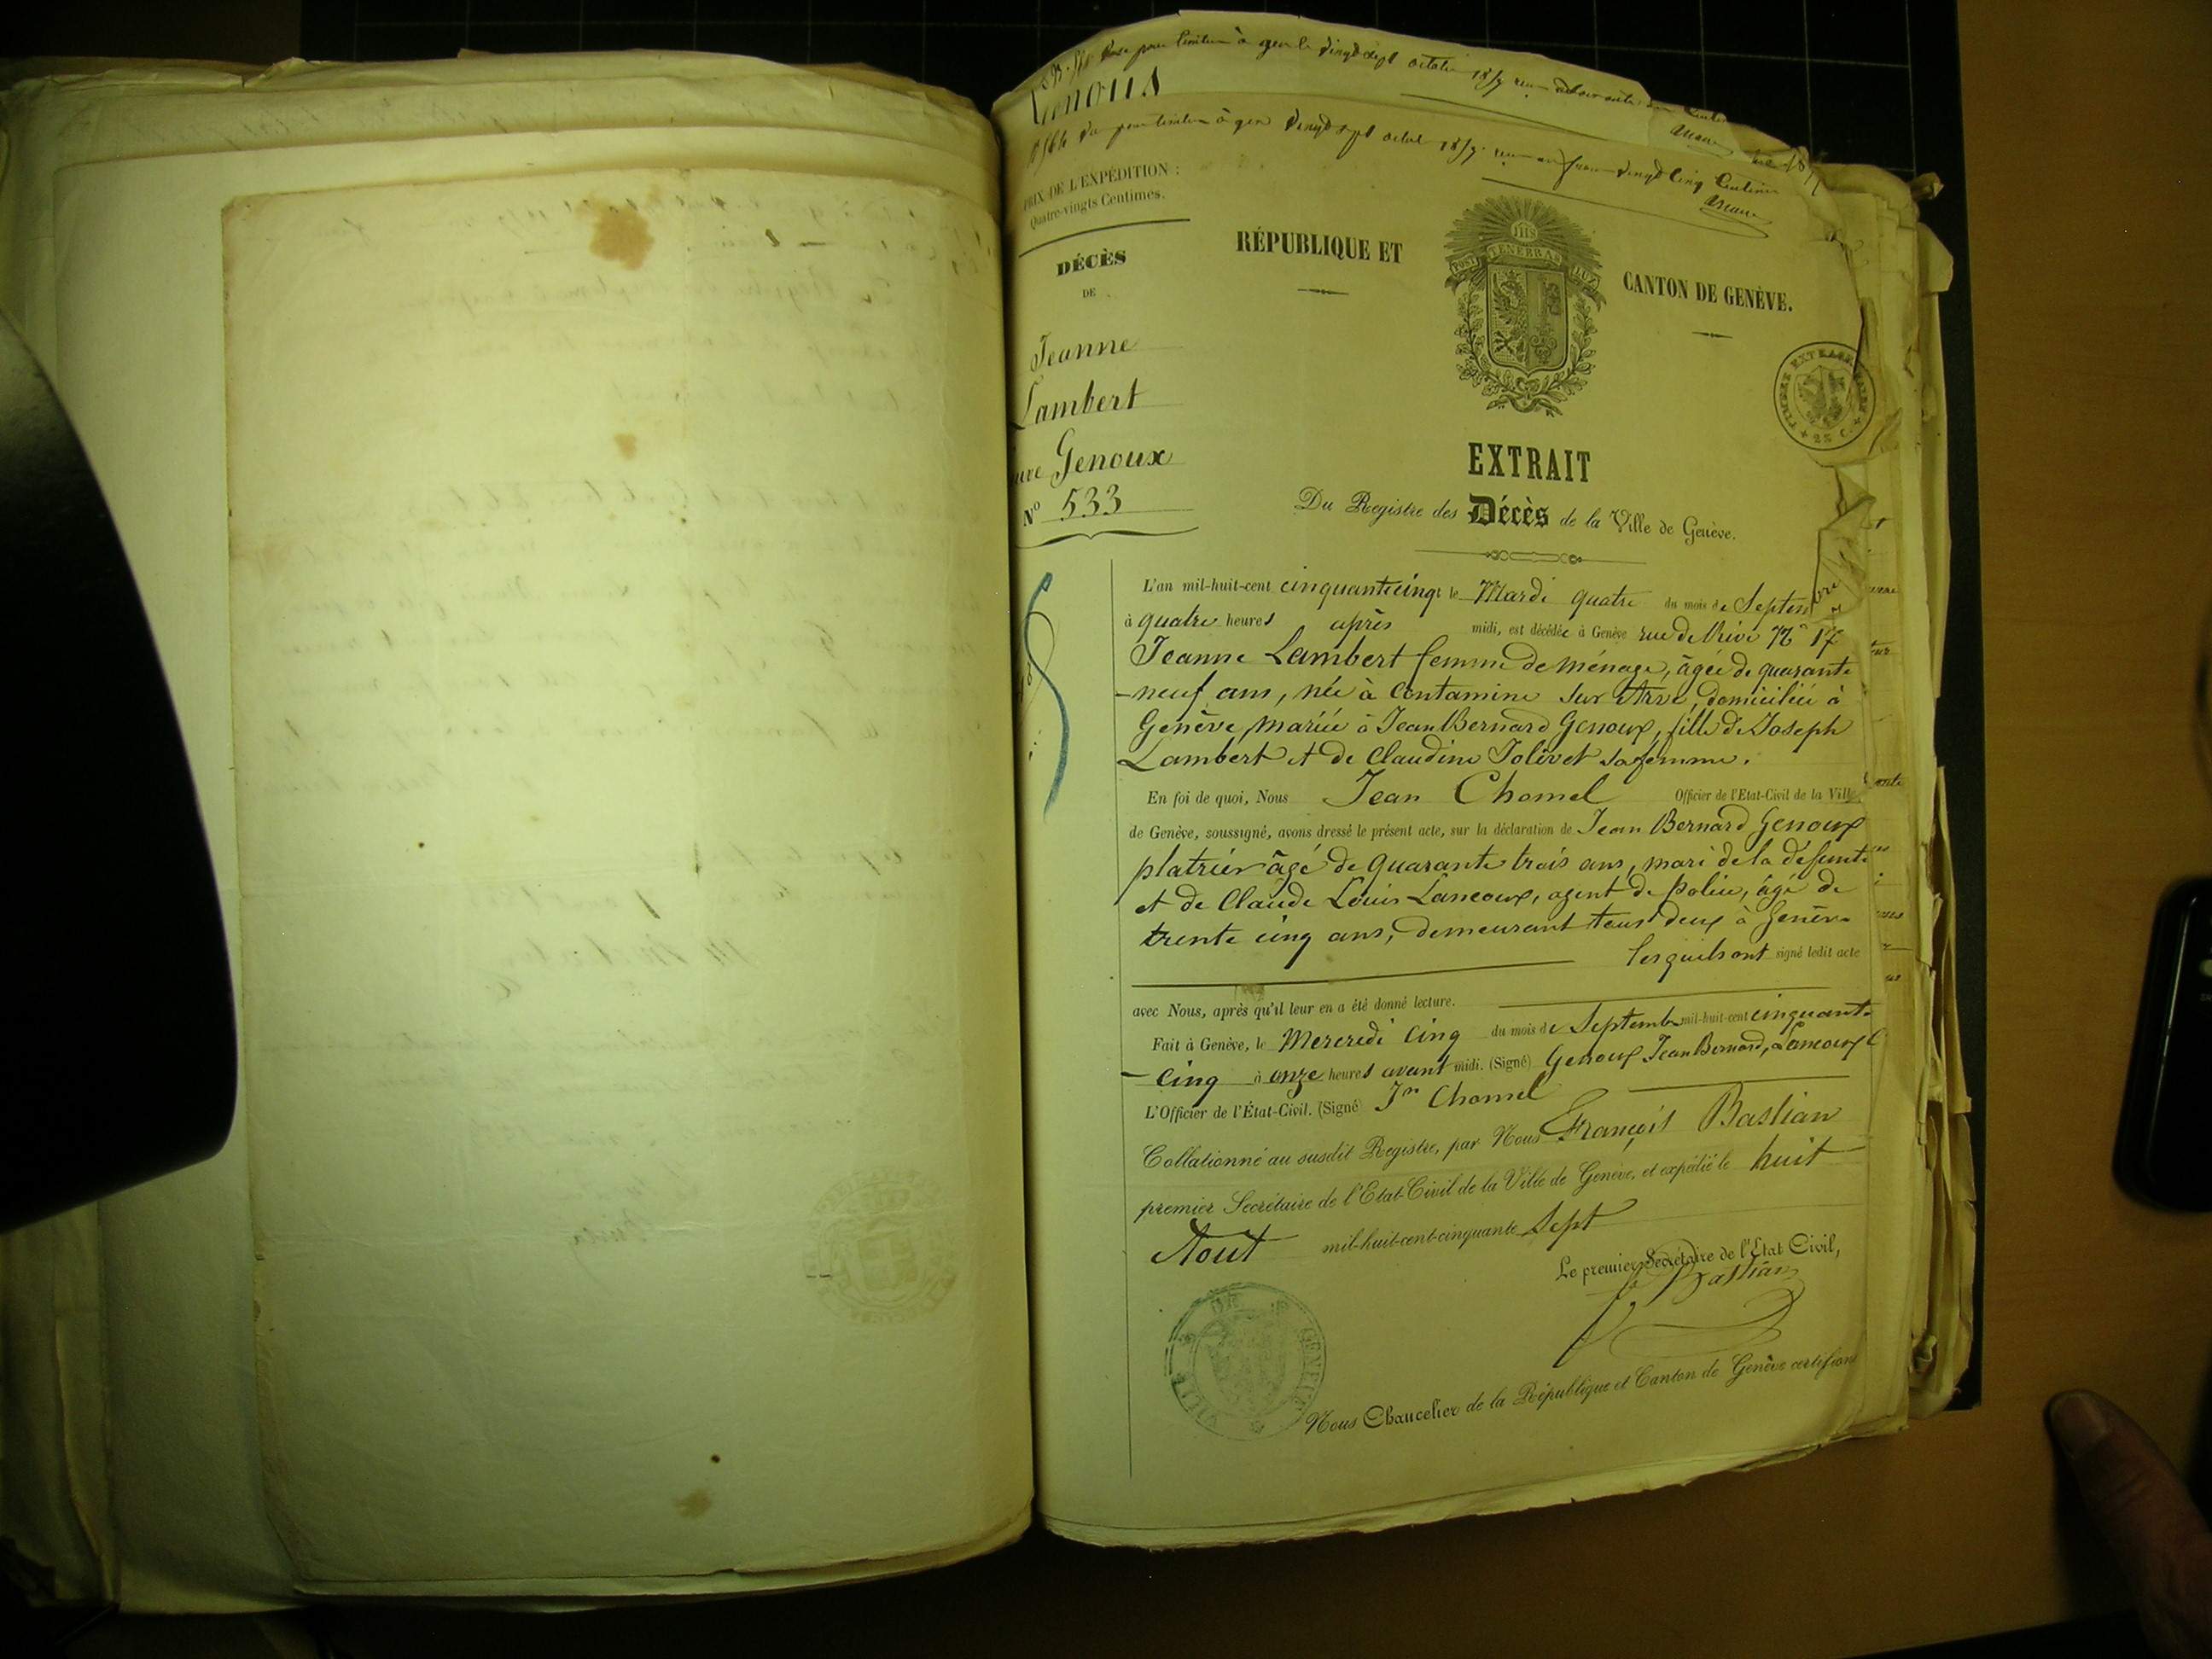 Genous
PRIX DE L'EXPÉDITION :
Quatre-vingts Centimes.
DÉCÈS
DE
Jeanne
Lambert
Genoux
No 533
RÉPUBLIQUE ET
POST TENEBRAS LUX
IHS
CANTON DE GENÈVE.
TIMBRE EXTRAORDINAIRE
25 C.
EXTRAIT
Du Registre des Décès de la Ville de Genève.
L'an mil-huit-cent cinquante cinq le Mardi quatre du mois de Septembre
à quatre heures après midi, est décédée à Genève rue de Rive No 17
Jeanne Lambert femme de ménage, âgée de quarante
-neuf ans, née à Contamine sur Arve, domiciliée à
Genève, mariée à Jean Bernard Genoux, fille de Joseph
Lambert et de Claudine Jolivet sa femme.
En foi de quoi, Nous Jean Chomel Officier de l'Etat-Civil de la Ville
de Genève, soussigné, avons dressé le présent acte, sur la déclaration de Jean Bernard Genoux
platrier âgé de quarante trois ans, mari de la défunte
et de Claude Louis Lancoux, agent de police, âgé de
trente cinq ans, demeurant tous deux à Genève
lesquels ont signé ledit acte
avec Nous, après qu'il leur en a été donné lecture.
Fait à Genève, le Mercredi cinq du mois de Septembre mil-huit-cent cinquante
-cinq à onze heures avant midi. (Signé) Genoux Jean Bernard, Lancoux C
L'Officier de l'État-Civil. (Signé) Jn Chomel
Collationné au susdit Registre, par Nous François Bastian
premier Secrétaire de l'Etat-Civil de la Ville de Genève, et expédié le huit
Aout mil-huit-cent-cinquante Sept
Le premier Secrétaire de l'Etat Civil,
F. Bastian
VILLE DE GENEVE
Nous Chancelier de la République et Canton de Genève certifions